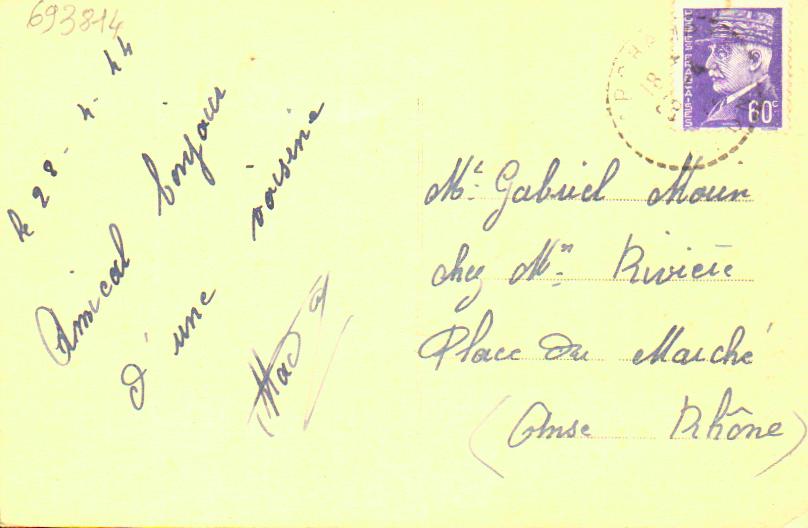 693814
le 28-4-44
Amical bonjour
d'une voisine
Mr. Gabriel Mourin
chez Mr. Rivière
Place du Marché
(Anse Rhône)
POSTES FRANÇAISES
60c
18